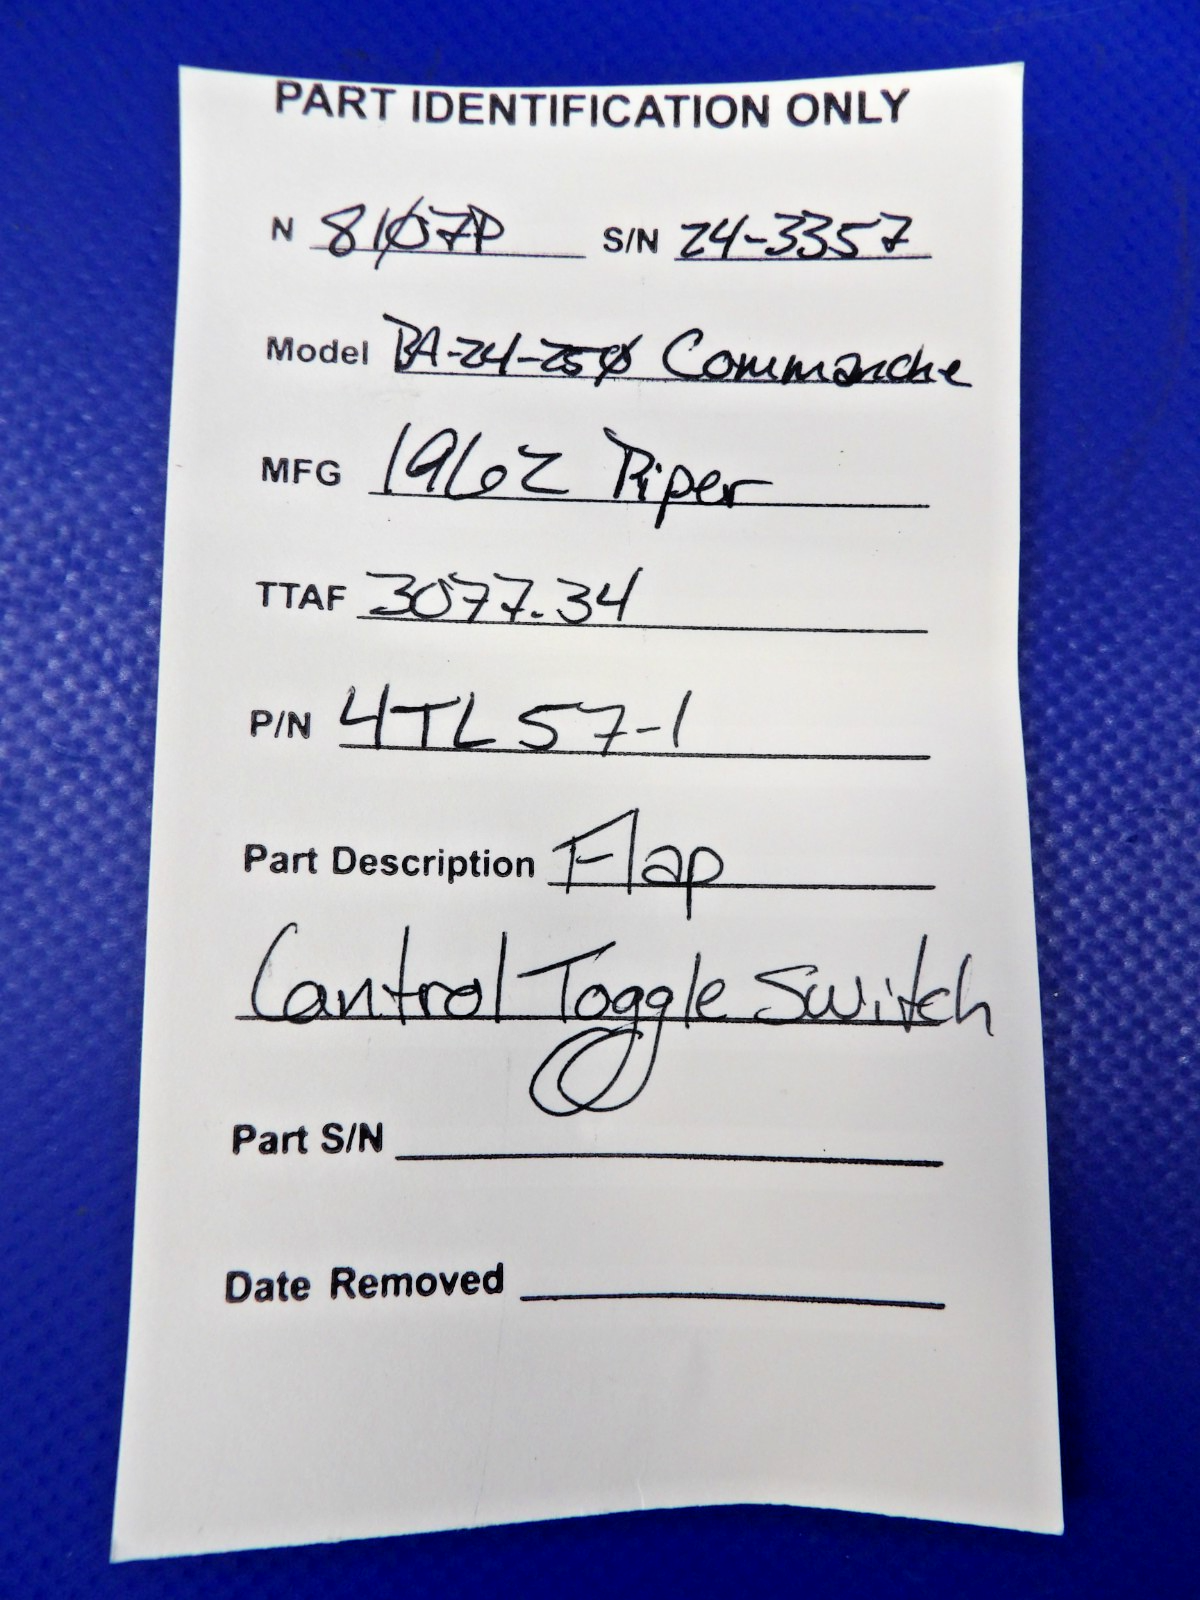 PART IDENTIFICATION ONLY
N 8107P S/N 24-3357
Model PA-24-250 Commanche
MFG 1962 Piper
TTAF 3077.34
P/N 4TL57-1
Part Description Flap
Control Toggle Switch
Part S/N
Date Removed